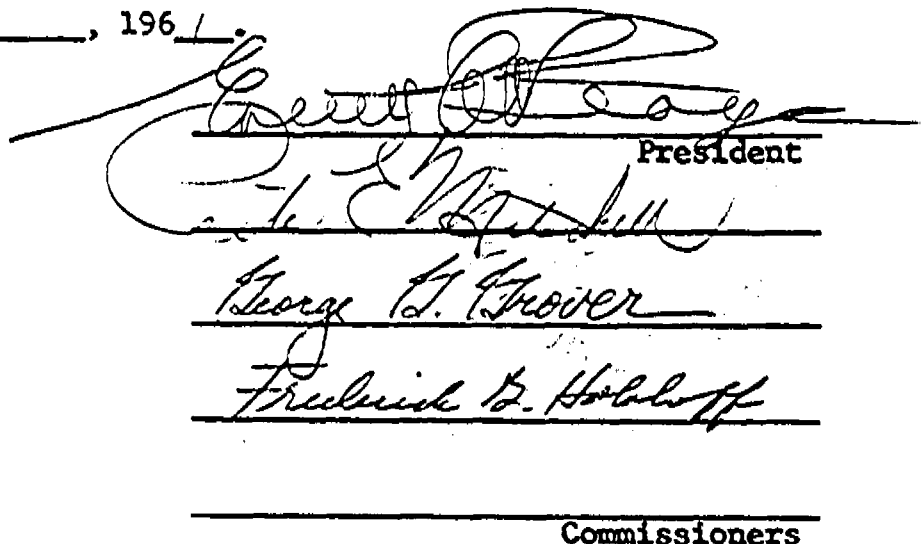 , 1961.
Everett C.
President
E. Mitchell
George G. Grover
Frederick B. Holoboff
Commissioners